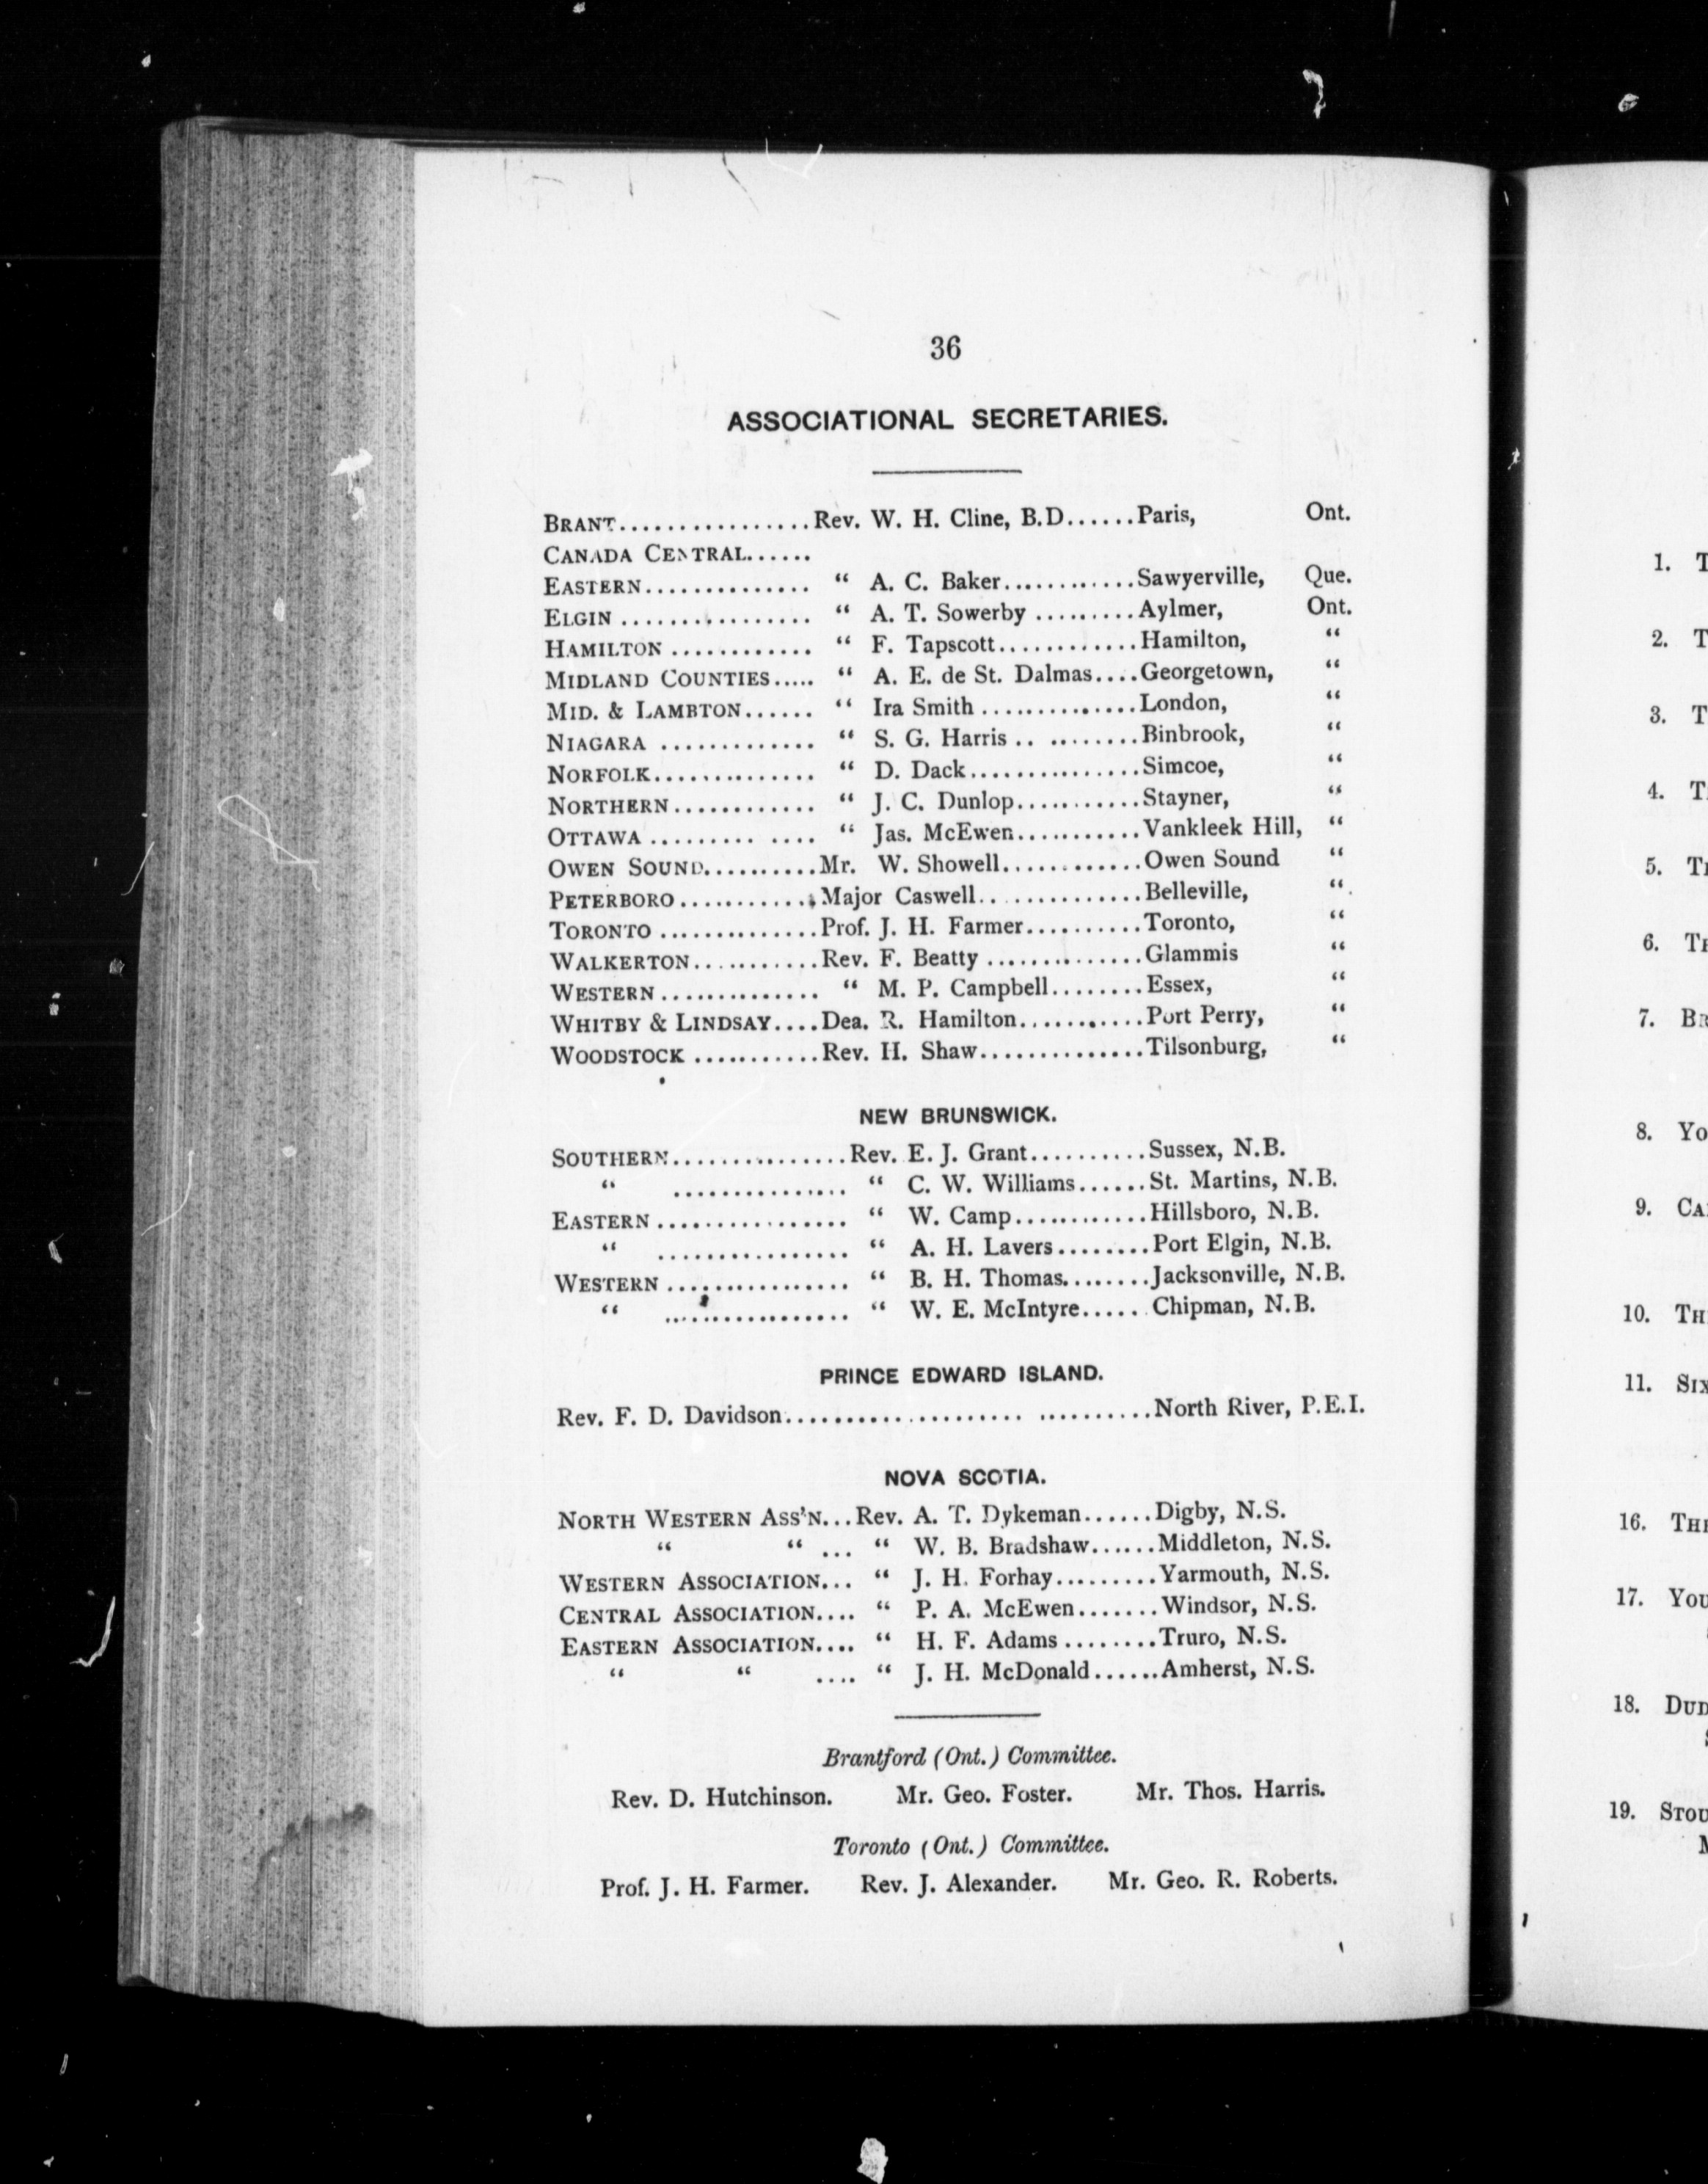 36
ASSOCIATIONAL SECRETARIES.
BRANT................Rev. W. H. Cline, B.D......Paris, Ont.
CANADA CENTRAL......
EASTERN.............. “ A. C. Baker............Sawyerville, Que.
ELGIN ................ “ A. T. Sowerby .........Aylmer, Ont.
HAMILTON ............ “ F. Tapscott............Hamilton, “
MIDLAND COUNTIES..... “ A. E. de St. Dalmas....Georgetown, “
MID. & LAMBTON...... “ Ira Smith ..............London, “
NIAGARA ............. “ S. G. Harris .. .........Binbrook, “
NORFOLK.............. “ D. Dack...............Simcoe, “
NORTHERN............ “ J. C. Dunlop...........Stayner, “
OTTAWA ......... .... “ Jas. McEwen...........Vankleek Hill, “
OWEN SOUND..........Mr. W. Showell............Owen Sound “
PETERBORO............Major Caswell..............Belleville, “
TORONTO ..............Prof. J. H. Farmer..........Toronto, “
WALKERTON...........Rev. F. Beatty ..............Glammis “
WESTERN.............. “ M. P. Campbell........Essex, “
WHITBY & LINDSAY....Dea. R. Hamilton...........Port Perry, “
WOODSTOCK ...........Rev. H. Shaw..............Tilsonburg, “
NEW BRUNSWICK.
SOUTHERN...............Rev. E. J. Grant..........Sussex, N.B.
“ ............... “ C. W. Williams......St. Martins, N.B.
EASTERN ................ “ W. Camp............Hillsboro, N.B.
“ ................ “ A. H. Lavers........Port Elgin, N.B.
WESTERN ................ “ B. H. Thomas........Jacksonville, N.B.
“ ................ “ W. E. McIntyre...... Chipman, N.B.
PRINCE EDWARD ISLAND.
Rev. F. D. Davidson.............................North River, P.E.I.
NOVA SCOTIA.
NORTH WESTERN ASS'N...Rev. A. T. Dykeman......Digby, N.S.
“ “ ... “ W. B. Bradshaw......Middleton, N.S.
WESTERN ASSOCIATION... “ J. H. Forhay.........Yarmouth, N.S.
CENTRAL ASSOCIATION.... “ P. A. McEwen.......Windsor, N.S.
EASTERN ASSOCIATION.... “ H. F. Adams ........Truro, N.S.
“ “ .... “ J. H. McDonald......Amherst, N.S.
Brantford (Ont.) Committee.
Rev. D. Hutchinson. Mr. Geo. Foster. Mr. Thos. Harris.
Toronto (Ont.) Committee.
Prof. J. H. Farmer. Rev. J. Alexander. Mr. Geo. R. Roberts.
1.
2.
3.
4.
5.
6.
7.
8.
9.
10.
11.
16.
17.
18.
19.